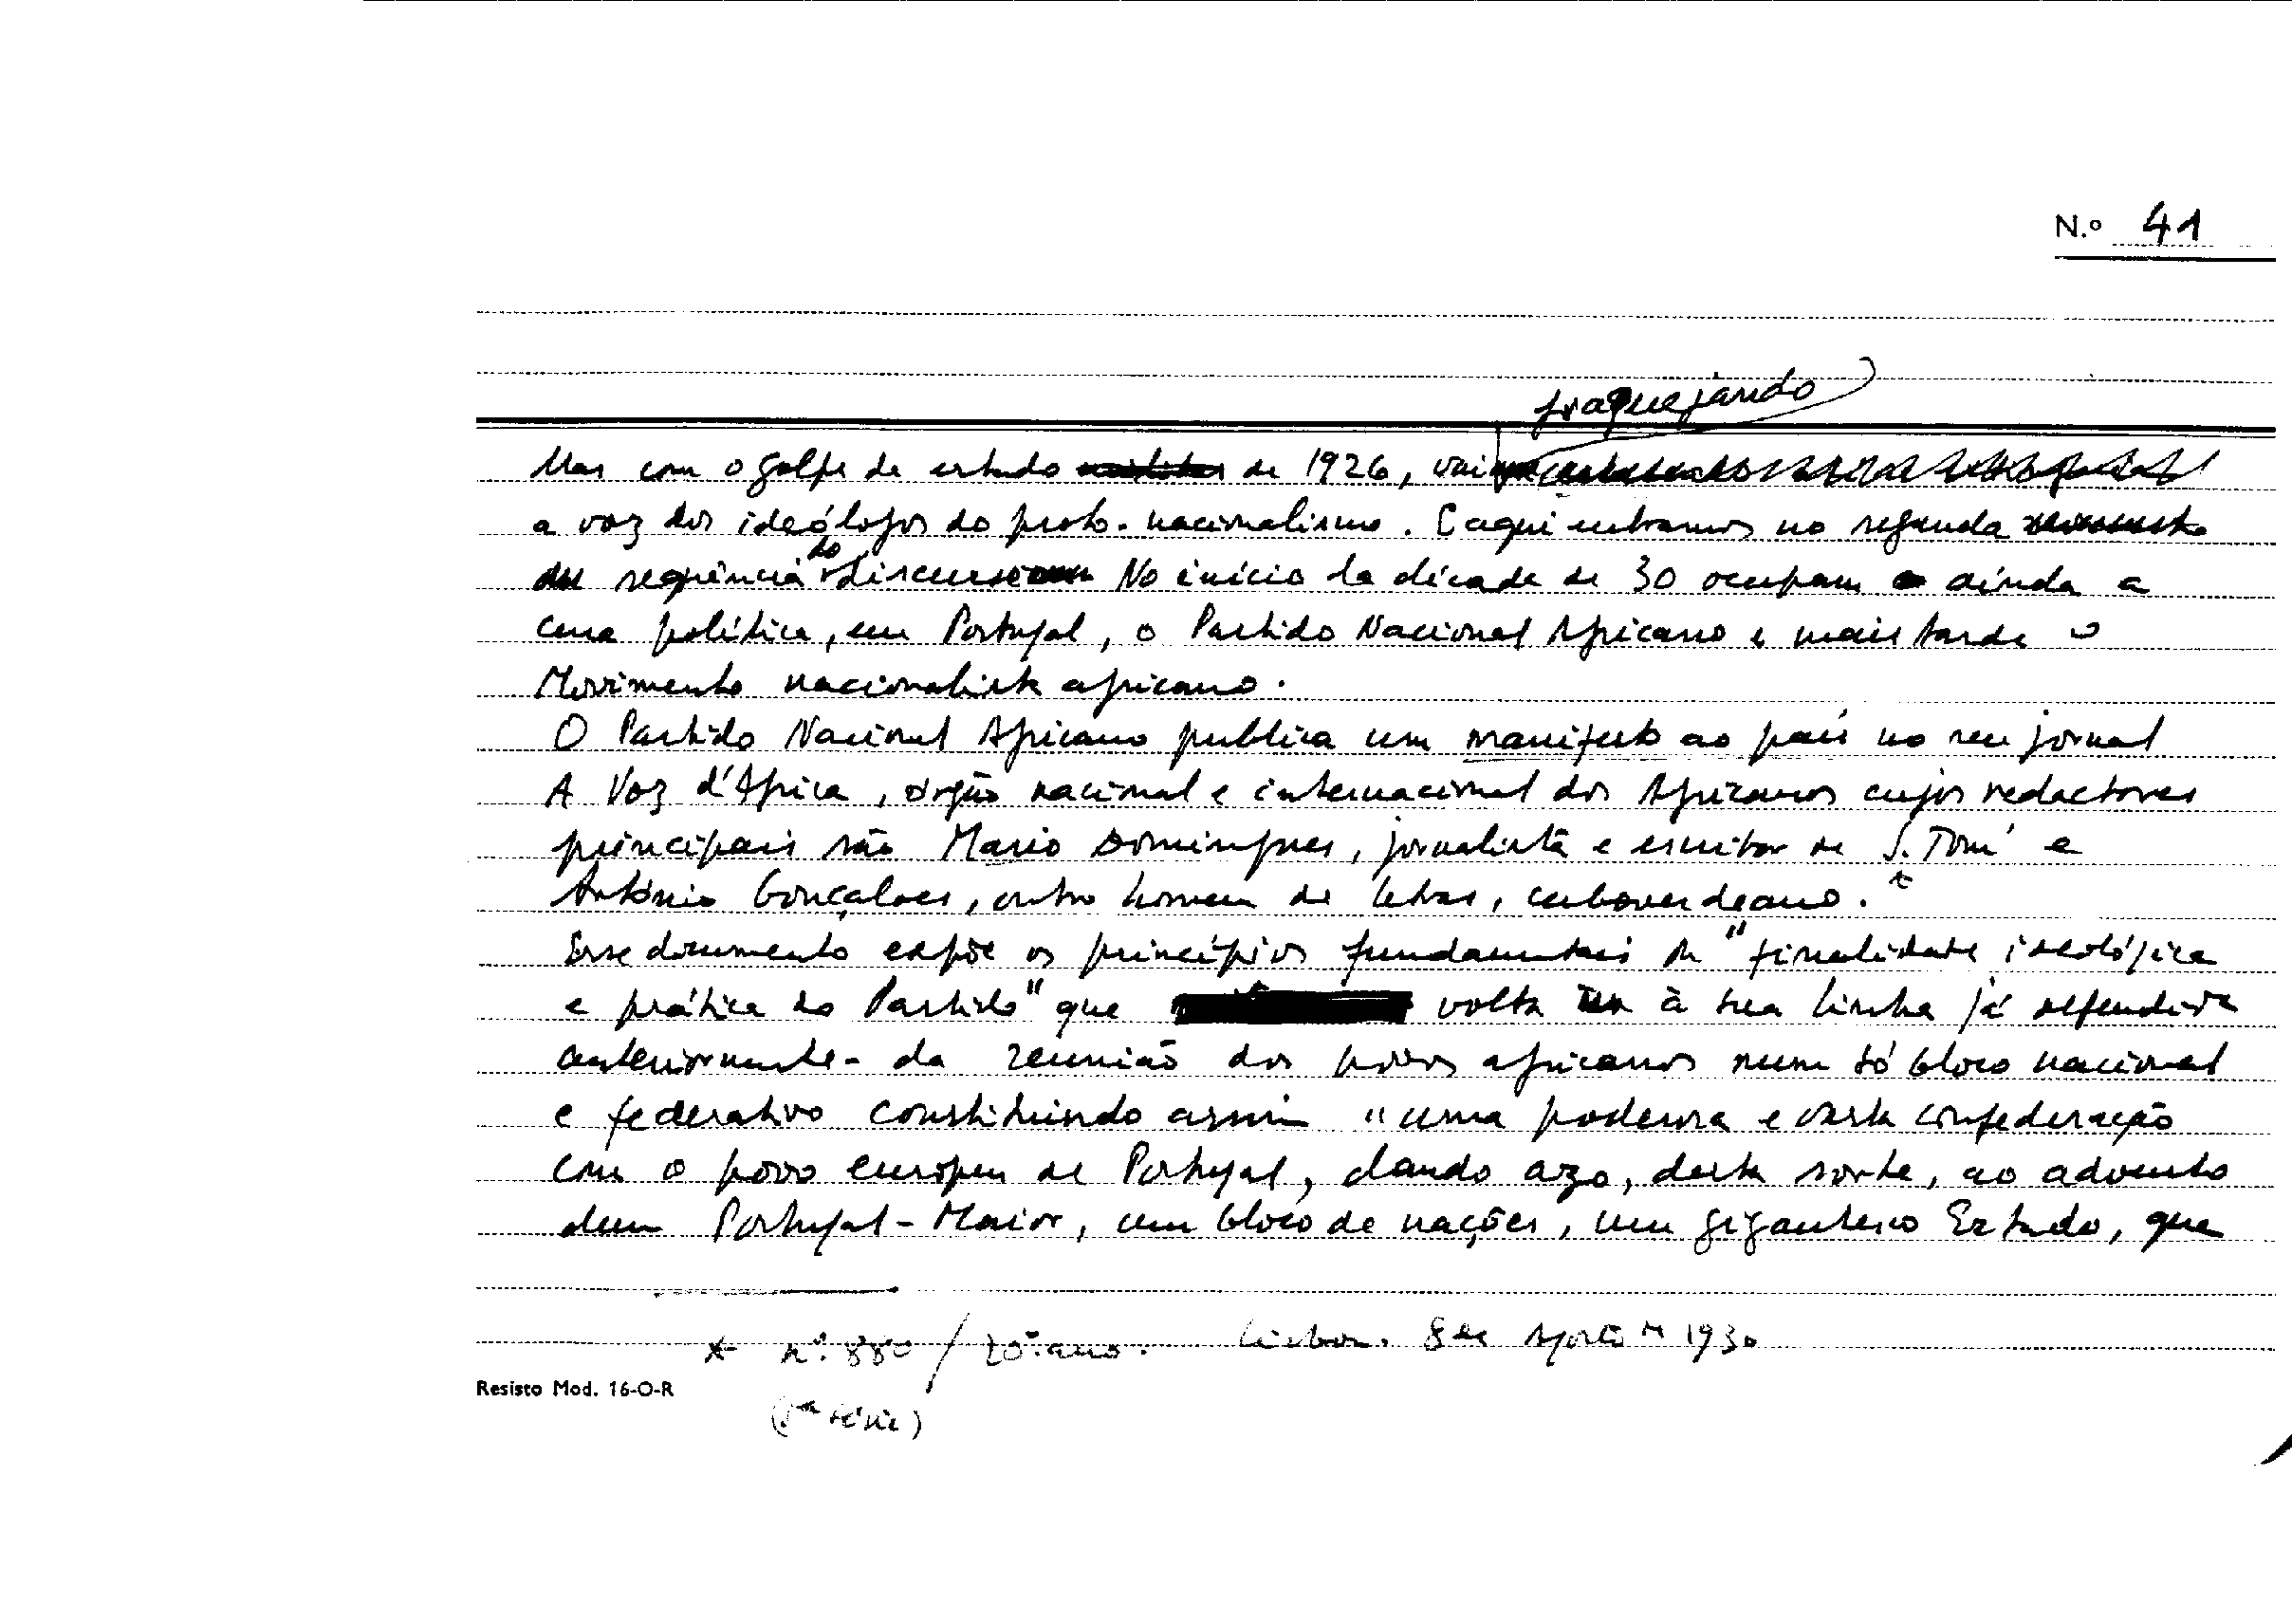 N.º 41
fraquejando
Mas com o golpe de estado de 1926, vai
a voz dos ideólogos do proto-nacionalismo. E aqui entramos no segunda
do
sequência discurso No início da década de 30 ocupam ainda a
cena política, em Portugal, o Partido Nacional Africano e mais tarde o
Movimento nacionalista africano.
O Partido Nacional Africano publica um manifesto ao país no seu jornal
A Voz d'Africa, órgão nacional e internacional dos Africanos cujos redactores
principais são Mario Domingues, jornalista e escritor de S. Tomé e
António Gonçalves, outro homem de letras, caboverdeano. *
Esse documento expõe os princípios fundamentais da "finalidade ideológica
e prática do Partido" que volta à sua linha já defendida
anteriormente - da reunião dos povos africanos num só bloco nacional
e federativo constituindo assim "uma poderosa e vasta confederação
com o povo europeu de Portugal, dando azo, desta sorte, ao advento
dum Portugal-Maior, um bloco de nações, um gigantesco Estado, que
* nº. 880 / 20º. ano. Lisboa. 8 de Agosto de 1930
Resisto Mod. 16-O-R
série)